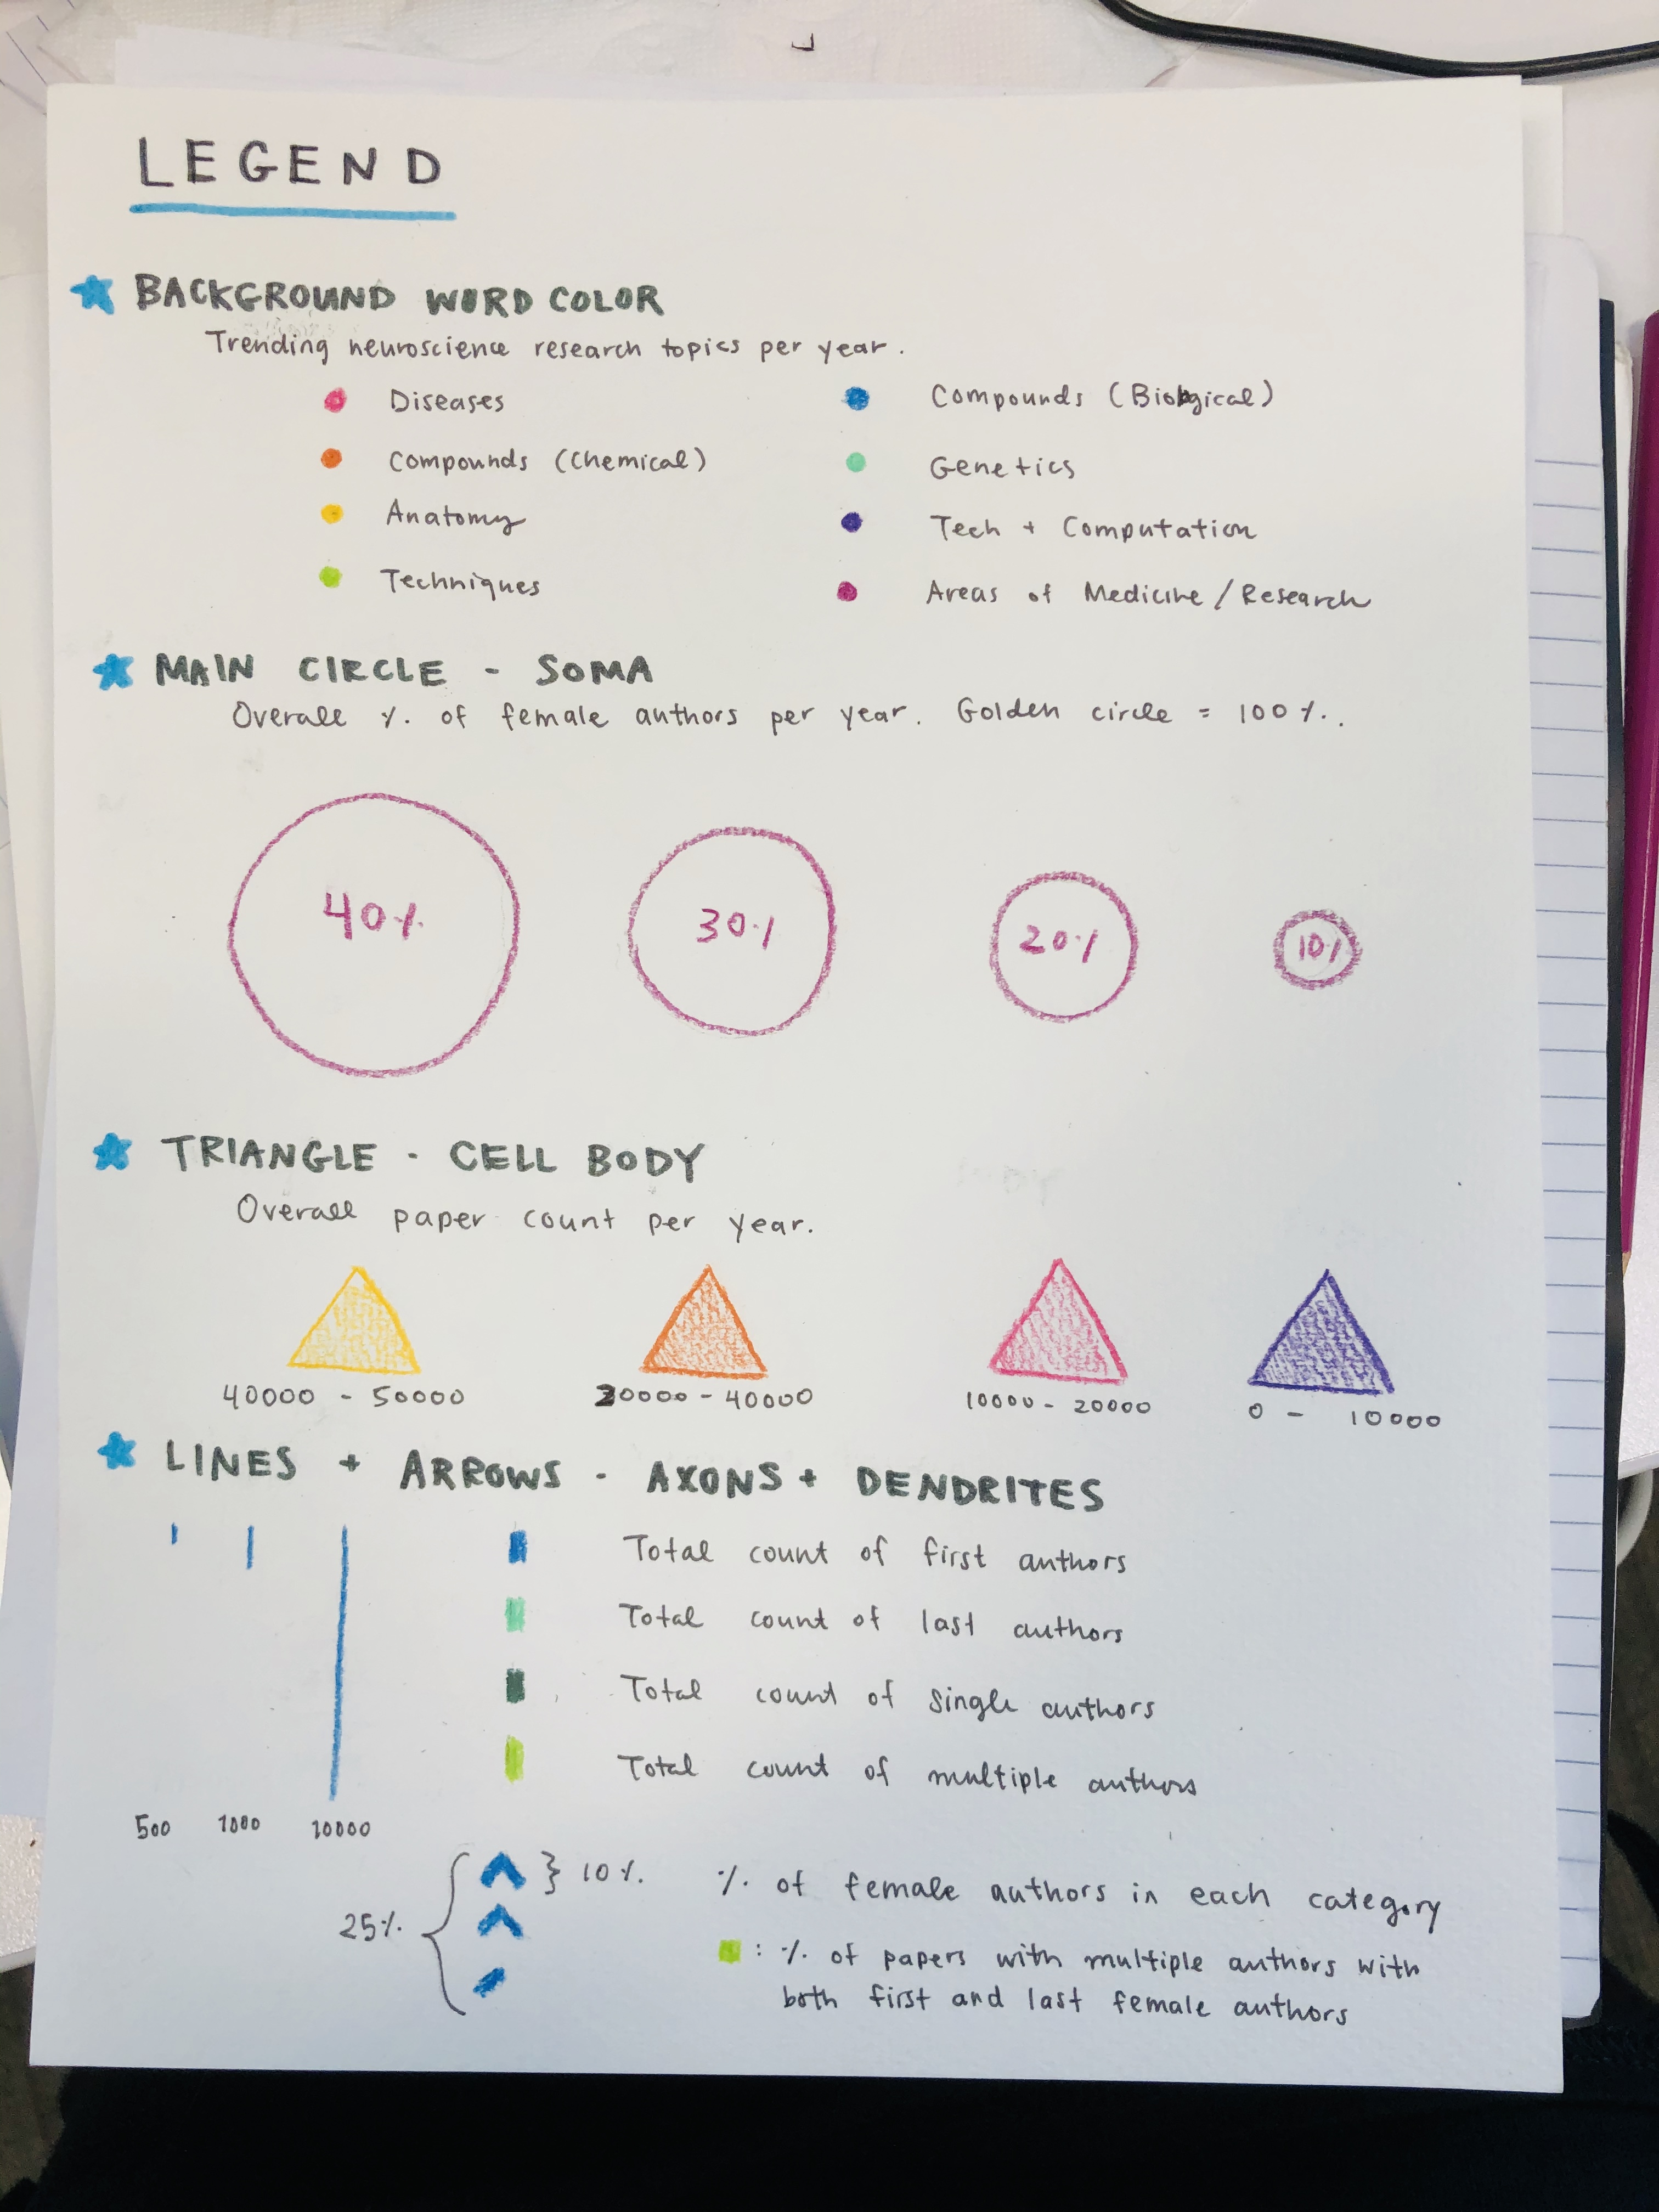 LEGEND
BACKGROUND WORD COLOR
Trending neuroscience research topics per year.
Diseases
Compounds (Biological)
Compounds (Chemical)
Genetics
Anatomy
Tech + Computation
Techniques
Areas of Medicine/Research
MAIN CIRCLE - SOMA
Overall % of female authors per year. Golden circle = 100%.
40%
30%
20%
10%
TRIANGLE - CELL BODY
Overall paper count per year.
40000 - 50000
20000 - 40000
10000 - 20000
0 - 10000
LINES + ARROWS - AXONS + DENDRITES
Total count of first authors
Total count of last authors
Total count of single authors
Total count of multiple authors
500 1000 10000
25% { } 10%
% of female authors in each category
: % of papers with multiple authors with
both first and last female authors